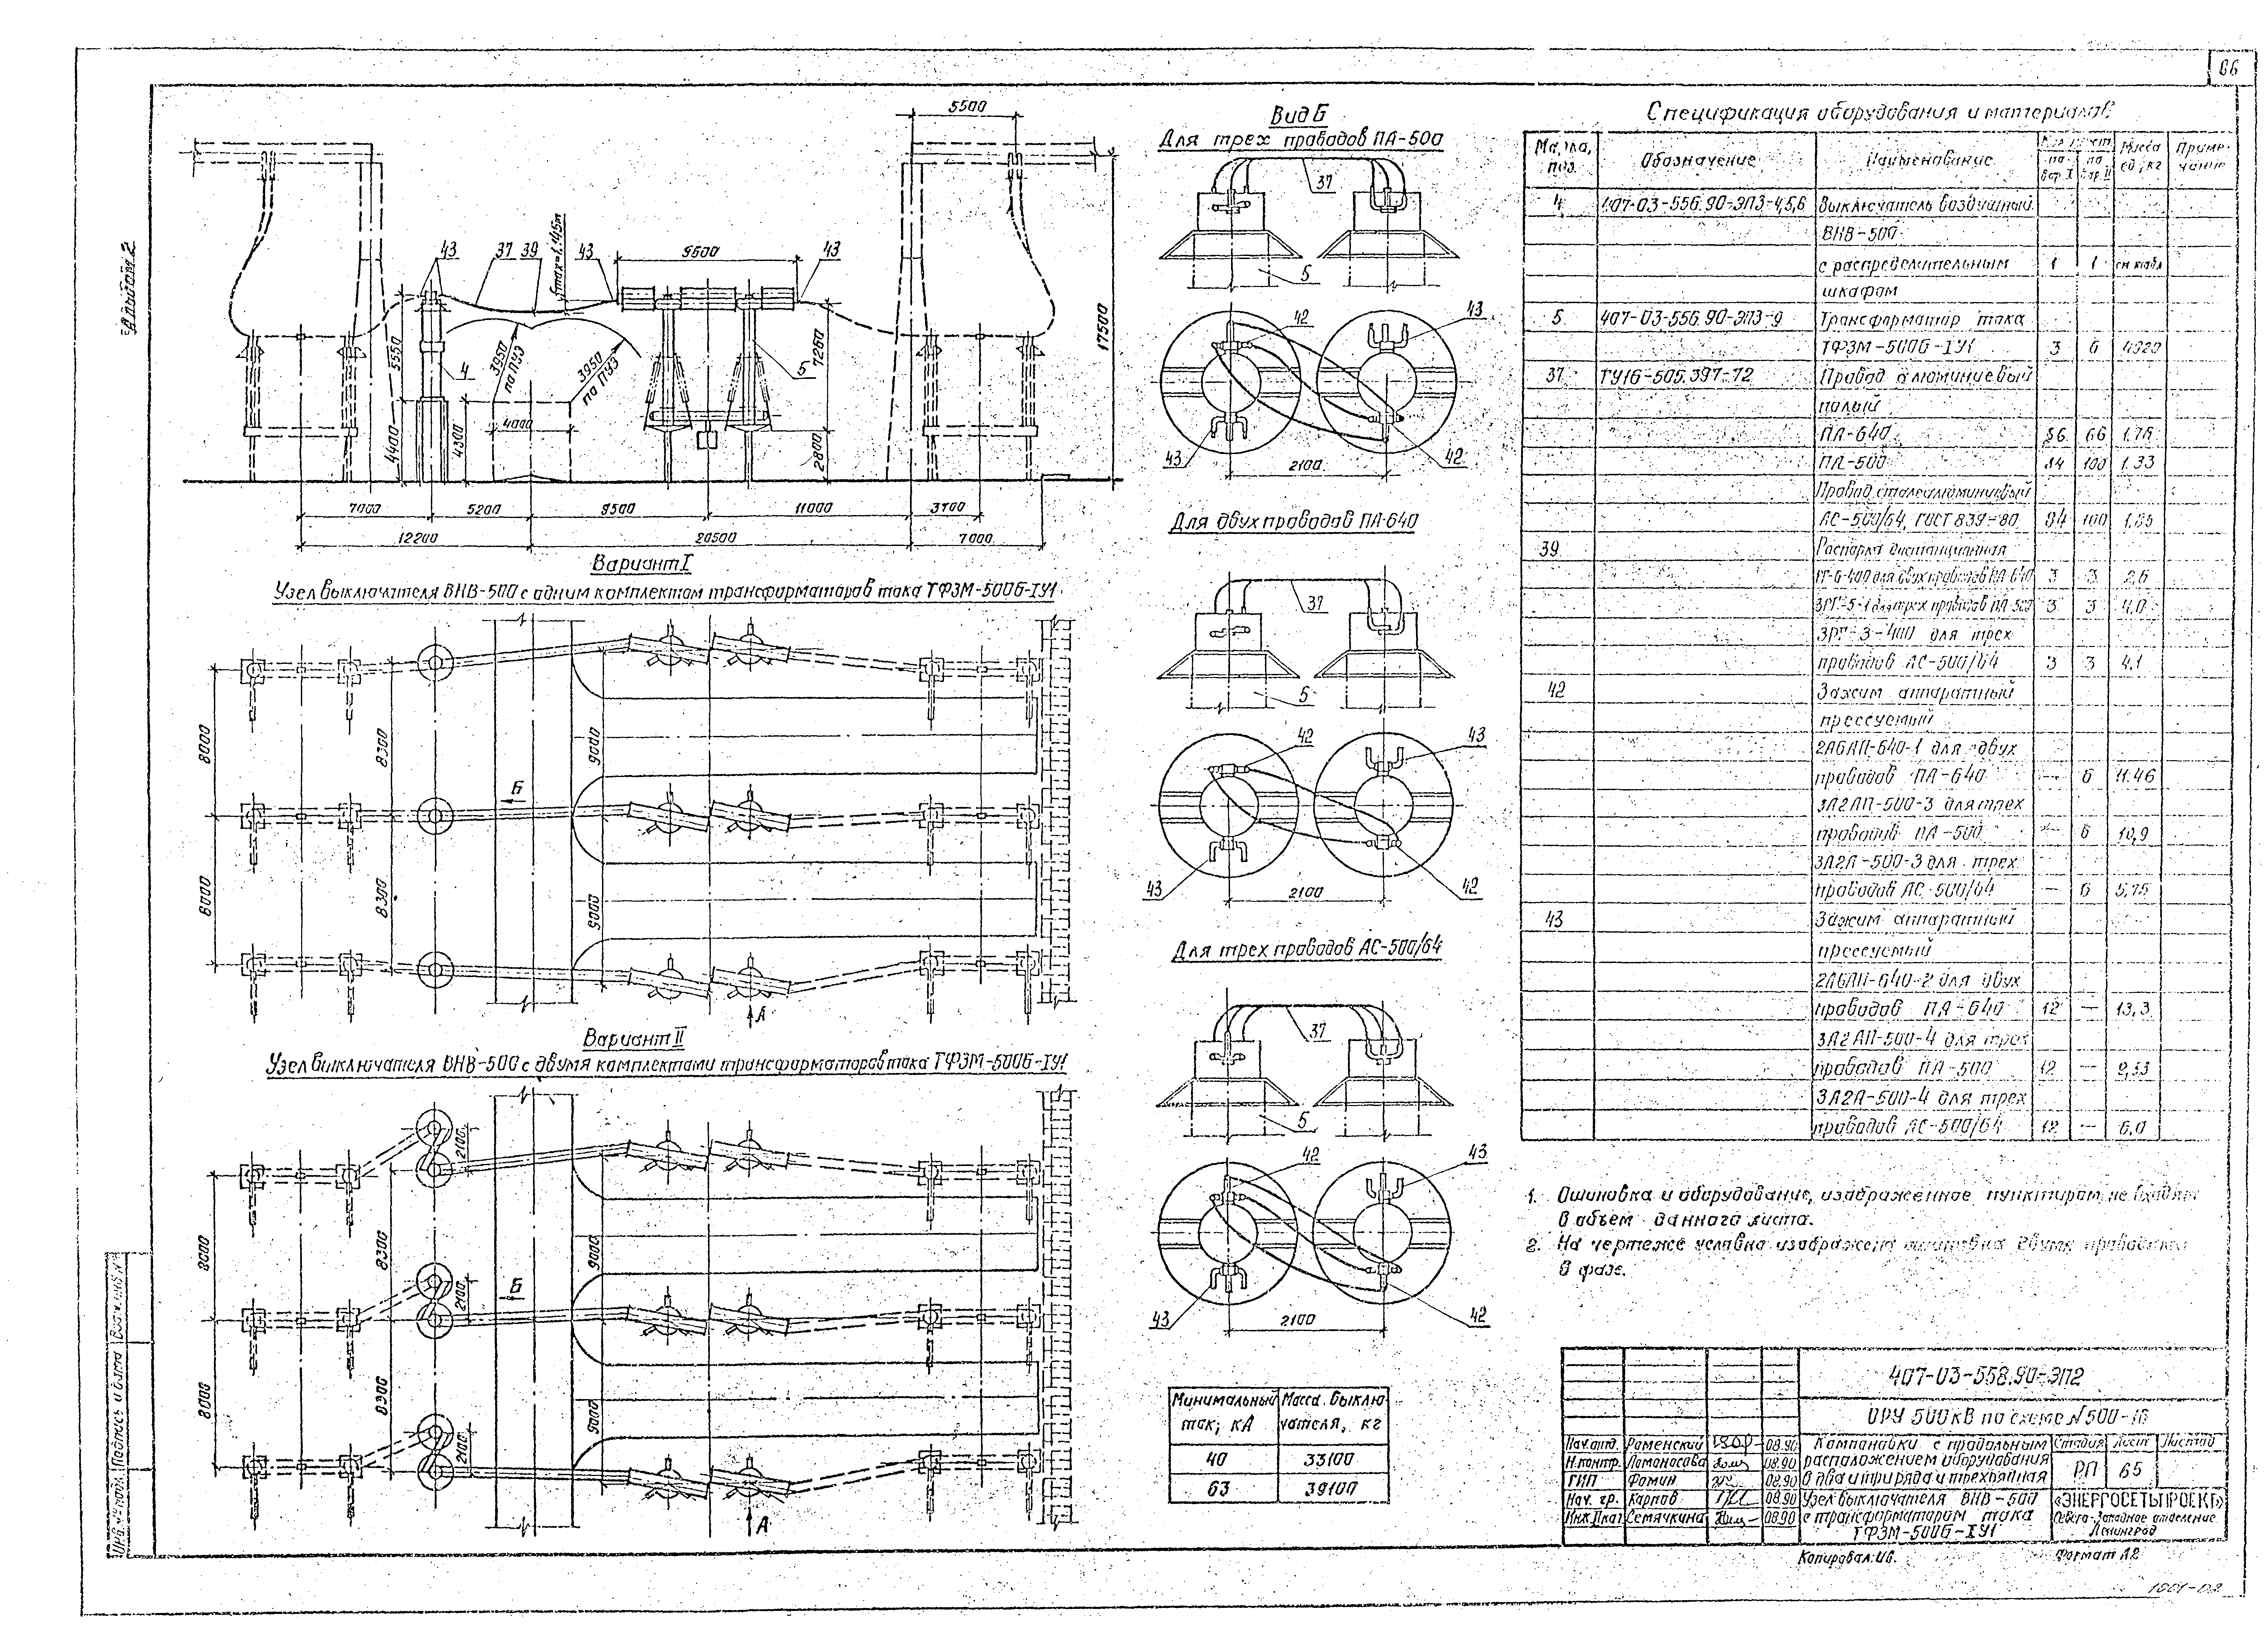 66
Альбом 2
5500
43
37
39
43
fmax=1,145м
9600
43
17500
5550
4
3950
по ПУЭ
3950
по ПУЭ
5
7260
4400
4300
4000
2800
7000
5200
9500
11000
3700
12200
20500
7000
Вариант I
Узел выключателя ВНВ-500 с одним комплектом трансформаторов тока ТФЗМ-500Б-IУ1
8000
8300
9000
Б
8000
8300
9000
А
Вариант II
Узел выключателя ВНВ-500 с двумя комплектами трансформаторов тока ТФЗМ-500Б-IУ1
2100
8000
8300
9000
Б
2100
8000
8300
9000
2100
А
Вид Б
Для трех проводов ПА-500
37
5
42
43
43
42
2100
Для двух проводов ПА-640
37
5
42
43
43
42
2100
Для трех проводов АС-500/64
37
5
42
43
43
42
2100
Минимальный ток, кА
Масса выключателя, кг
40 33100
63 39100
Спецификация оборудования и материалов
Обозначение
Наименование
по вар. I
по вар. II
Масса ед., кг
Примечание
4 407-03-556.90-ЭП3-4,5,6 Выключатель воздушный
ВНВ-500
с распределительным 1 1 см. табл.
шкафом
5 407-03-556.90-ЭП3-9 Трансформатор тока
ТФЗМ-500Б-IУ1 3 6 4920
37 ТУ16-505.397-72 Провод алюминиевый
полый
ПА-640 56 66 1,76
ПА-500 84 100 1.33
Провод сталеалюминиевый
АС-500/64, ГОСТ 839-80 84 100 1,85
39 Распорка дистанционная
РГ-6-400 для двух проводов ПА-640 3 3 2,6
3РГ-5-1 для трех проводов ПА-500 3 3 4,0
3РГ-3-400 для трех
проводов АС-500/64 3 3 4,1
42 Зажим аппаратный
прессуемый
2А6АП-640-1 для двух
проводов ПА-640 — 6 11.46
3А2АП-500-3 для трех
проводов ПА-500 — 6 10,9
3А2А-500-3 для трех
проводов АС-500/64 — 6 5,75
43 Зажим аппаратный
прессуемый
2А6АП-640-2 для двух
проводов ПА-640 12 — 13,3
3А2АП-500-4 для трех
проводов ПА-500 12 —
3А2А-500-4 для трех
проводов АС-500/64 12 — 6,0
1. Ошиновка и оборудование, изображенное пунктиром, не входят
в объем данного листа.
2. На чертеже условно изображена ошиновка двумя проводами
в фазе.
407-03-558.90-ЭП2
ОРУ 500кВ по схеме N 500-16
Нач.отд. Роменский 08.90
Н.контр. Ломоносова 08.90
ГИП Фомин 08.90
Нач. гр. Карпов 08.90
Семячкина 08.90
Компановки с продольным
расположением оборудования
в два и три ряда и трехрядная
Узел выключателя ВНВ-500
с трансформатором тока
ТФЗМ-500Б-IУ1
Стадия Лист Листов
РП 65
«ЭНЕРГОСЕТЬПРОЕКТ»
Северо-Западное отделение
Ленинград
Копировал:
Формат А2
Инв.№подл. Подпись и дата Взам.инв.№